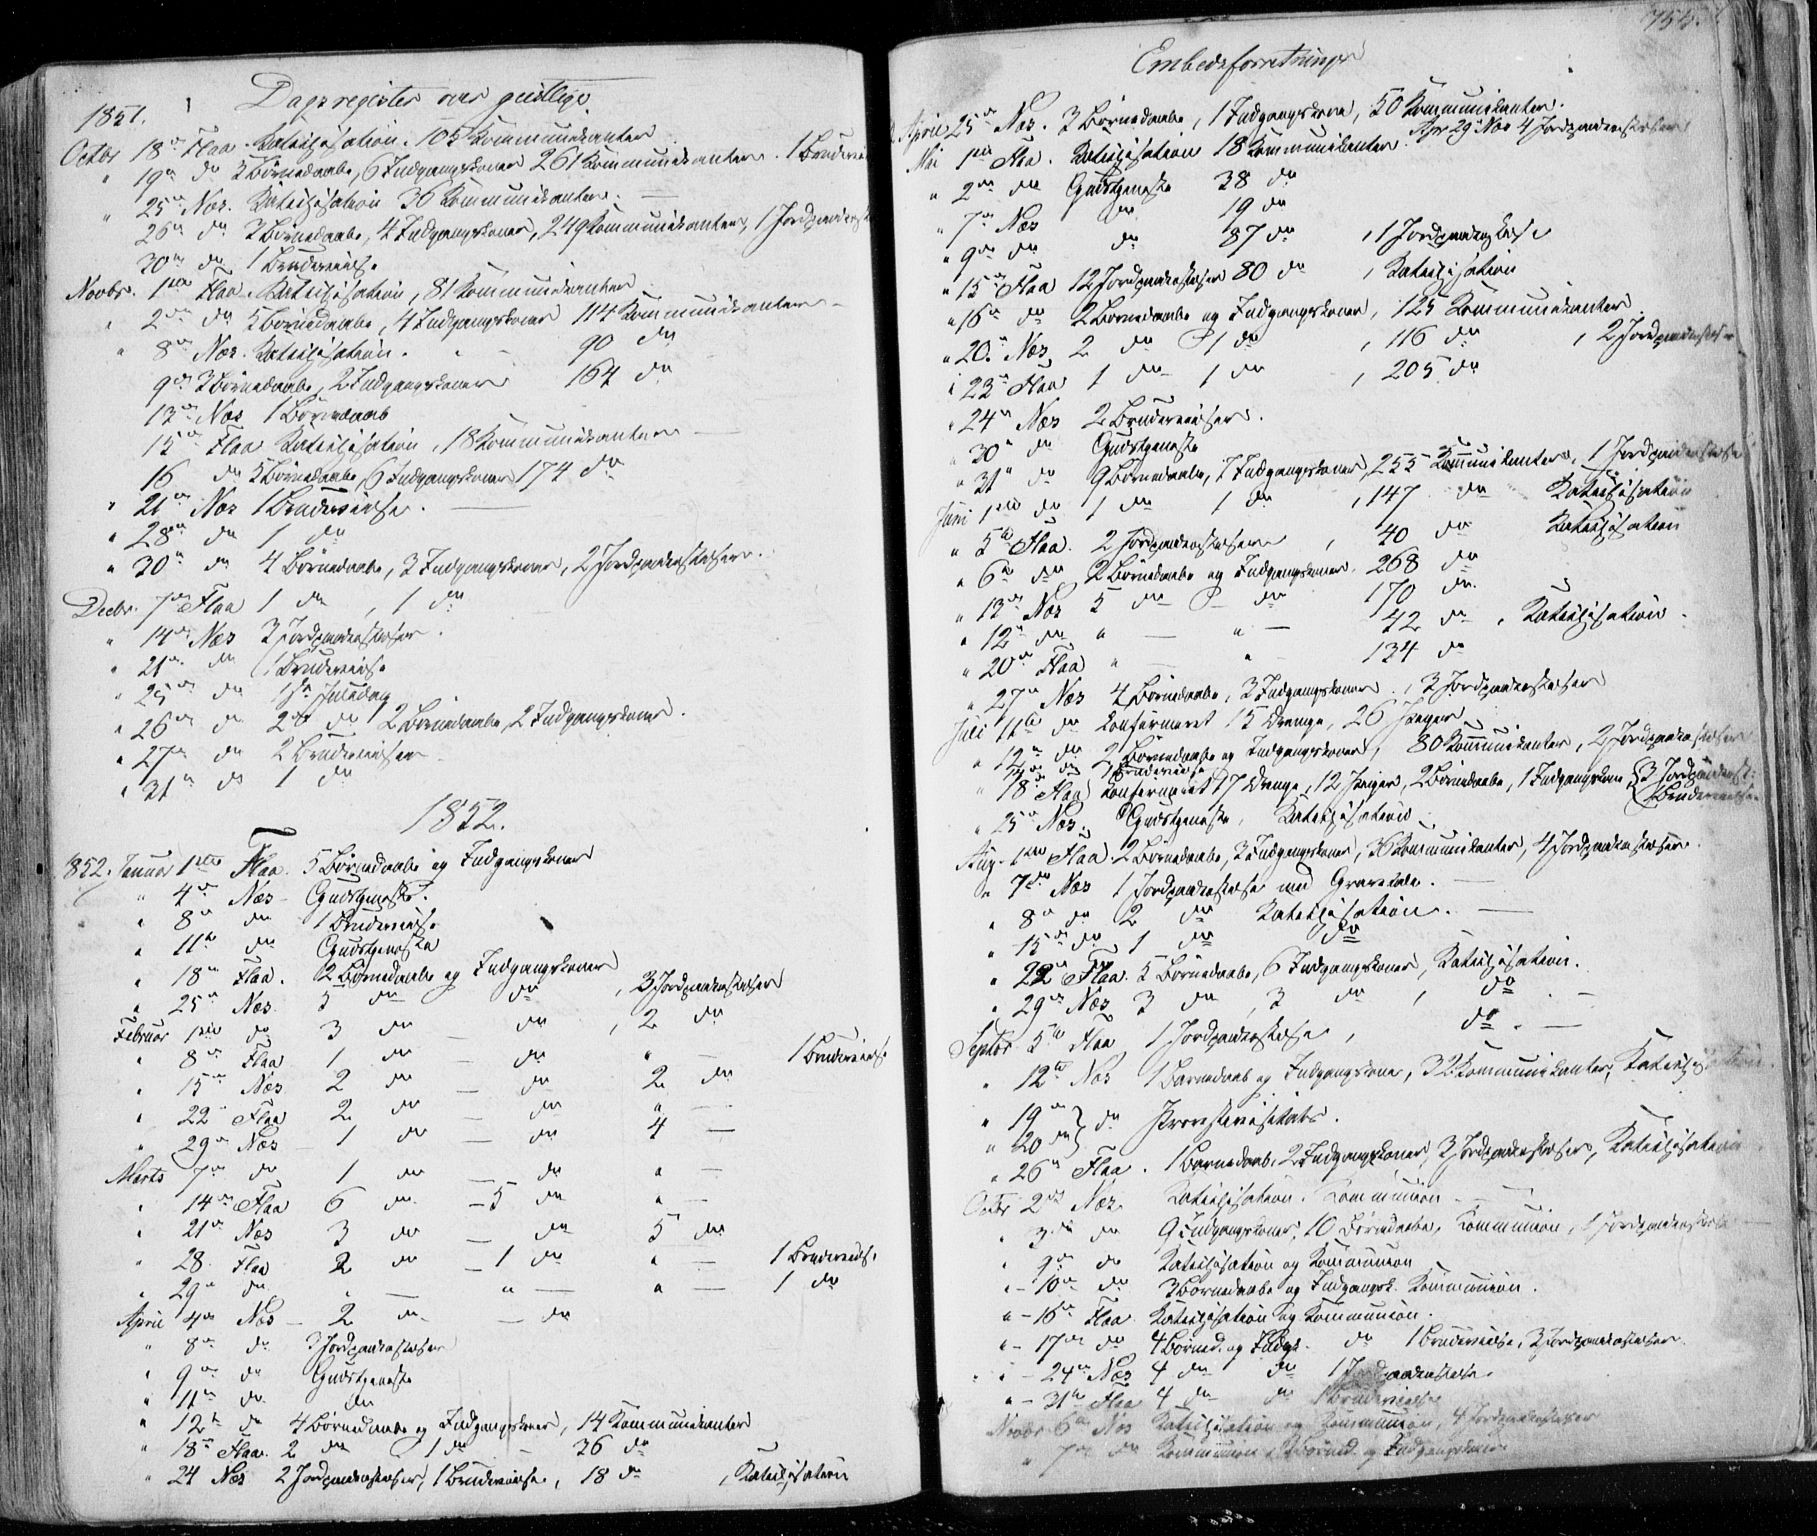 Dagsregister over geistlige
1851.
Octbr 18de Flaa. Katechisation. 105 Kommunikanter
" 19de do 3 Børnedaabe, 6 Indgangskoner 261 Kommunikanter. 1 Brudevielse
" 25de Næs. Katechisation 36 Kommunikanter. —
26de do 3 Børnedaabe, 4 Indgangskoner, 249 Kommunikanter, 1 Jordpaakastelse
30te do 1 Brudevielse
Novbr. 1ste Flaa. Katechisation, 81 Kommunikanter
" 2den do 5 Børnedaabe, 4 Indgangskoner 114 Kommunikanter —
" 8de Næs. Katechisation. 90 do
9de 3 Børnedaabe, 2 Indgangskoner 164 do
13de Næs 1 Børnedaab
15de Flaa Katechisation, 18 Kommunikanter —
16 do 5 Børnedaabe, 6 Indgangskoner 174 do
" 21de Næs 1 Brudevielse. —
" 28de do 1 do
" 30te do 4 Børnedaabe, 3 Indgangskoner, 2 Jordpaakastelser.
Decbr. 7de Flaa 1 do, 1 do
" 14de Næs 3 Jordpaakastelser.
" 21de do 1 Brudevielse
" 25de do 1ste Juledag
" 26de do 2den do 2 Børnedaabe, 2 Indgangskoner.
" 27de do 2 Brudevielser
" 31te do 1 do
1852.
852. Januar 1ste Flaa. 5 Børnedaabe og Indgangskoner
" 4de Næs - Gudstjeneste.
" 8de do 1 Brudevielse
" 11te do Gudstjeneste
" 18de Flaa. 2 Børnedaabe og Indgangskoner
" 25de Næs. 5 do do, 3 Jordpaakastelser
Februar 1ste do 3 do do, 2 do
" 8de Flaa 1 do — do " — 1 Brudevielse
" 15de Næs 2 do — do 2 do
" 22de Flaa 2 do — do " —
" 29de Næs — 1 do — do 4 —
Marts 7de do 1 do — do " —
" 14de Flaa 6 do — 5 do " —
" 21de Næs 3 do — do 5 do
" 28. Flaa 2 do — 1 do " — 1 Brudevielse
" 29de do " — " — " — 1 do
April 4de Næs — 2 do — do
" 8de do 3 Jordpaakastelser
" 9de do Gudstjeneste
" 11te do do
" 12te do 4 Børnedaabe og Indgangskoner, 14 Kommunikanter
" 18de Flaa. 2 do 1 do — 36 do
" 24 Næs 2 Jordpaakastelser, 1 Brudevielse, 18 do, Katechisation
754.
Embedsforretninger
April 25de Næs. 3 Børnedaabe, 1 Indgangskone, 50 Kommunikanter.
Apr 29de Næs 4 Jordpaakastelser
Mai 1ste Flaa. Katechisation 18 Kommunikanter.
" 2den do Gudstjeneste 38 do
" 7de Næs do 19 do
" 9de do do 87 do, 1 Jordpaakastelse
" 15de Flaa 12 Jordpaakastelser 80 do, Katechisation
" 16de do 2 Børnedaabe og Indgangskoner, 125 Kommunikanter
" 20de Næs 2 do 1 do, 116 do, 2 Jordpaakastelser
" 23de Flaa 1 do 1 do, 205 do
" 24de Næs 2 Brudevielser.
" 30te do Gudstjeneste
" 31te do 9 Børnedaabe, 7 Indgangskoner, 255 Kommunikanter, 1 Jordpaakastelse
Juni 1ste do 1 do 1 do, 147 do Katechisation
" 5te Flaa. 2 Jordpaakastelser, 40 do Katechisation
" 6te do 2 Børnedaabe og Indgangskoner. 268 do
" 13de Næs 5 do — do 170 do
" 12te do " — " — 42 do, Katechisation.
" 20de Flaa " — " — 134 do
" 27de Næs 4 Børnedaabe, 3 Indgangskoner, 3 Jordpaakastelser
Juli 11te do Konfirmeret 15 Drenge, 26 Piger
" 12te do 2 Børnedaabe og Indgangskoner, 80 Kommunikanter, 2 Jordpaakastelser
do 1 Brudevielse
" 18de Flaa Konfirmeret 17 Drenge, 12 Piger, 2 Børnedaabe, 1 Indgangskone { 3 Jordpaakast: 1 Brudevielse
" 25de Næs. Gudstjeneste, Katechisation
Aug. 1ste Flaa. 2 Børnedaabe, 3 Indgangskoner, 36 Kommunikanter, 4 Jordpaakastelser.
" 7de Næs 1 Jordpaakastelse med Gravtale. —
" 8de do 2 do Katechisation. —
" 15de do 1 do do
" 22de Flaa. 5 Børnedaabe, 6 Indgangskoner, Katechisation.
" 29de Næs 3 do, 3 do, do. —
Septbr 5te Flaa 1 Jordpaakastelse, do. —
" 12te Næs 1 Barnedaab og Indgangskone, 32 Kommunikanter, Katechisation
" 19de } do Provstevisitats.
" 20de }
" 26de Flaa. 1 Barnedaab, 2 Indgangskoner, 3 Jordpaakastelser, Katechisation
Octbr 2den Næs. Katechisation. Kommunion —
" 3die do 9 Indgangskoner, 10 Børnedaabe, Kommunion, 1 Jordpaakastelse
" 9de do Katechisation og Kommunion
" - 10de do 3 Børnedaabe og Indgangsk. Kommunion.
" - 16de Flaa Katechisation og Kommunion.
" - 17de do 4 Børned. og Indgk. do 1 Brudevielse, 3 Jordpaakastelser.
" - 24de Næs 4 do do 1 Jordpaakastelse.
" - 31te Flaa 4 do do 1 Brudevielse
Novbr 6te Næs Katechisation og Kommunion, 4 Jordpaakastelser
" 7de do Kommunion, Børned. og Indgangskoner